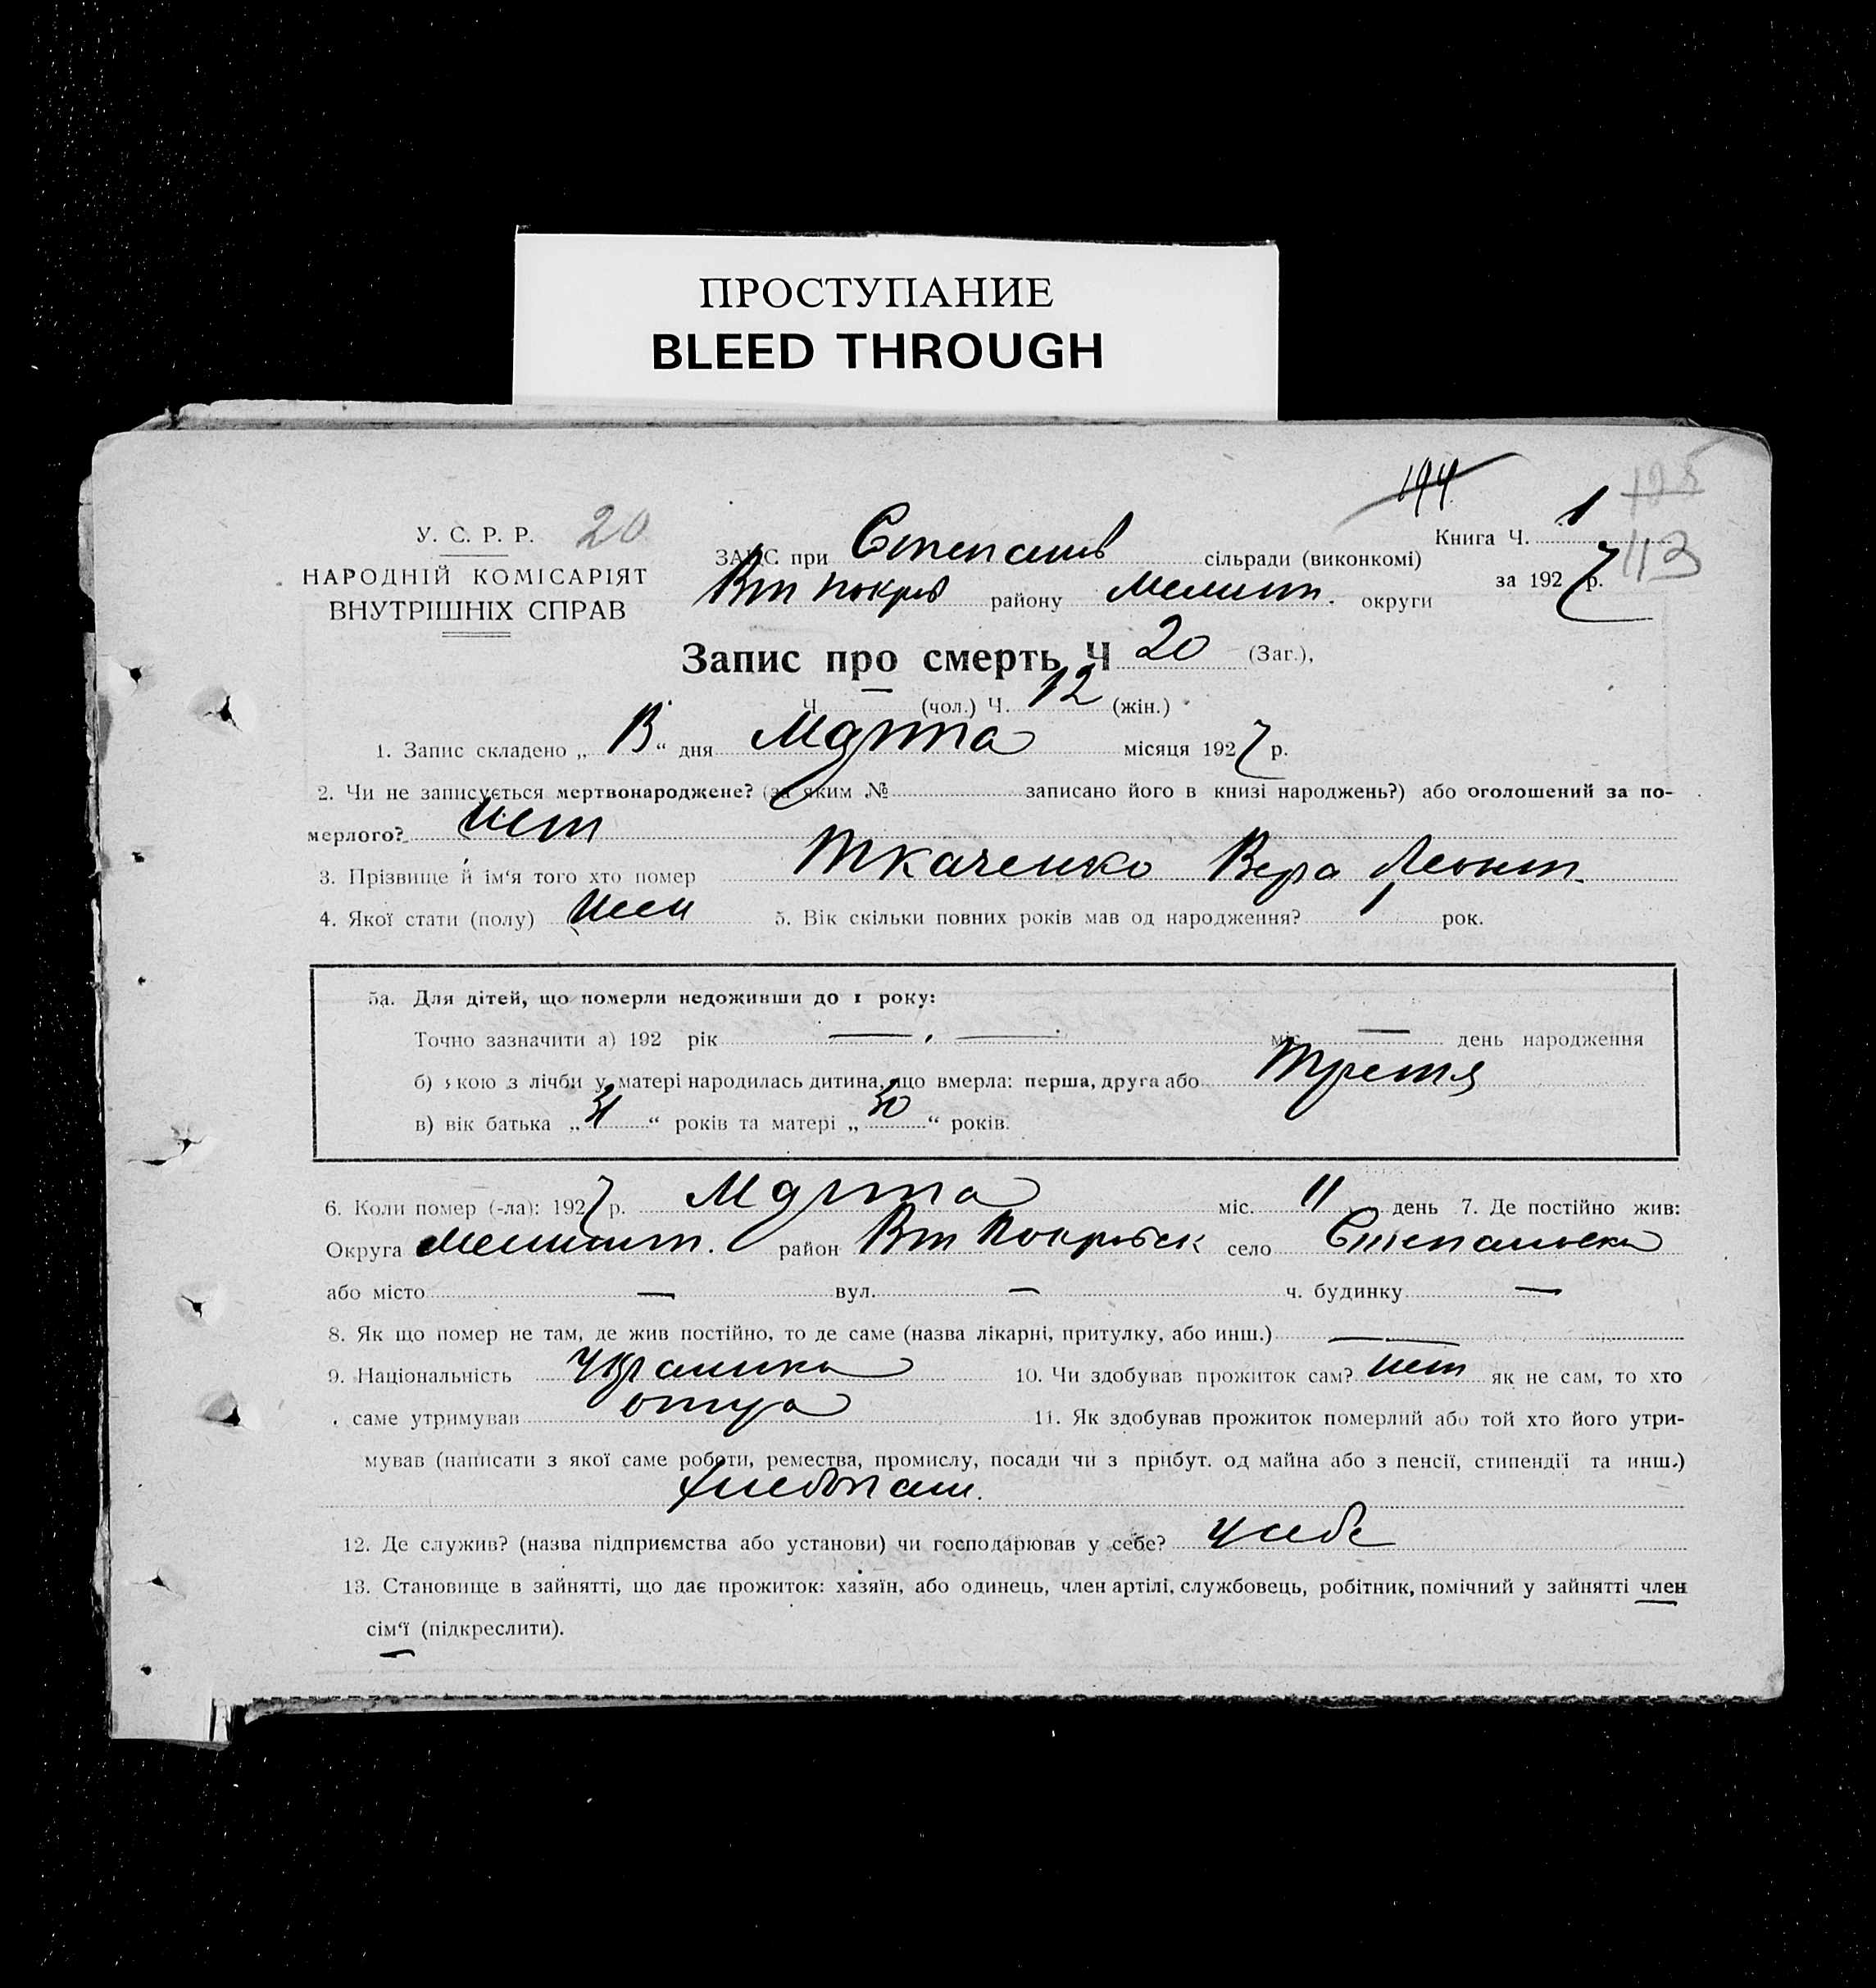 ПРОСТУПАНИЕ
BLEED THROUGH
194
195
У. С. Р. Р. 20
НАРОДНІЙ КОМІСАРІЯТ
ВНУТРІШНІХ СПРАВ
ЗАГС при Степанів сільради (виконкомі)
Книга Ч. 1
113
Вт Покров району Мелит. округи
за 1927 р.
Запис про смерть Ч 20 (Заг.),
Ч. — (чол.) Ч. 12 (жін.)
1. Запис складено „ “ дня Марта місяця 1927 р.
2. Чи не записується мертвонароджене? (за яким № записано його в книзі народжень?) або оголошений за по-
мерлого? нет
3. Прізвище й ім‘я того хто помер Ткаченко Вера Леонт.
4. Якої стати (полу) жен 5. Вік скільки повних років мав од народження? 1 рок.
5а. Для дітей, що померли недоживши до 1 року:
Точно зазначити а) 192 рік — , — міс. — день народження
б) якою з лічби у матері народилась дитина, що вмерла: перша, друга або третя
в) вік батька „31“ років та матері „30“ років.
6. Коли помер (-ла): 1927 р. Марта міс. 11 день 7. Де постійно жив:
Округа Мелитоп. район Вт Покровск село Степановка
або місто — вул. — ч. будинку —
8. Як що помер не там, де жив постійно, то де саме (назва лікарні, притулку, або инш.) —
9. Національність Украинка 10. Чи здобував прожиток сам? нет як не сам, то хто
саме утримував отца 11. Як здобував прожиток померлий або той хто його утри-
мував (написати з якої саме роботи, ремества, промислу, посади чи з прибут. од майна або з пенсії, стипендії та инш.)
хлебопаш.
12. Де служив? (назва підприємства або установи) чи господарював у себе? у себе
13. Становище в зайнятті, що дає прожиток: хазяїн, або одинець, член артілі, службовець, робітник, помічний у зайнятті член
сім‘ї (підкреслити).